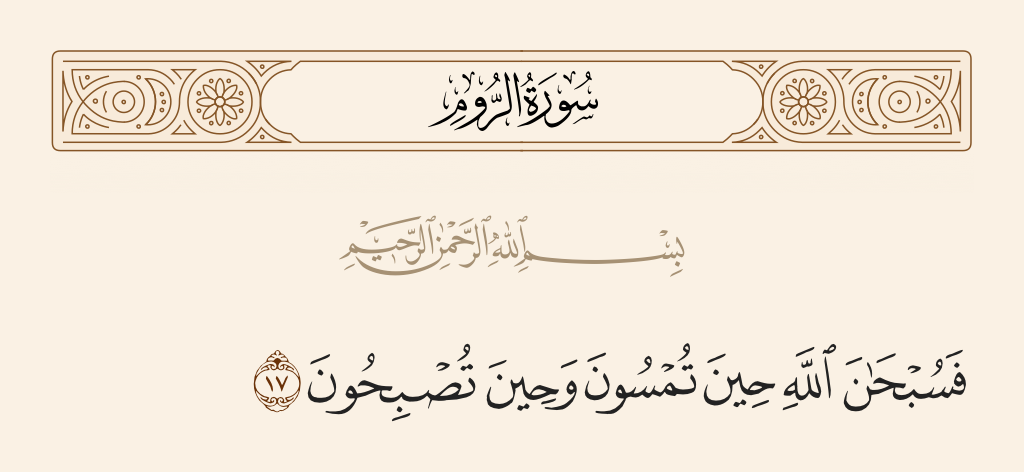 سُورَةُ الرُّومِ
بِسْمِ ٱللَّهِ ٱلرَّحْمَٰنِ ٱلرَّحِيمِ
فَسُبْحَٰنَ ٱللَّهِ حِينَ تُمْسُونَ وَحِينَ تُصْبِحُونَ ١٧